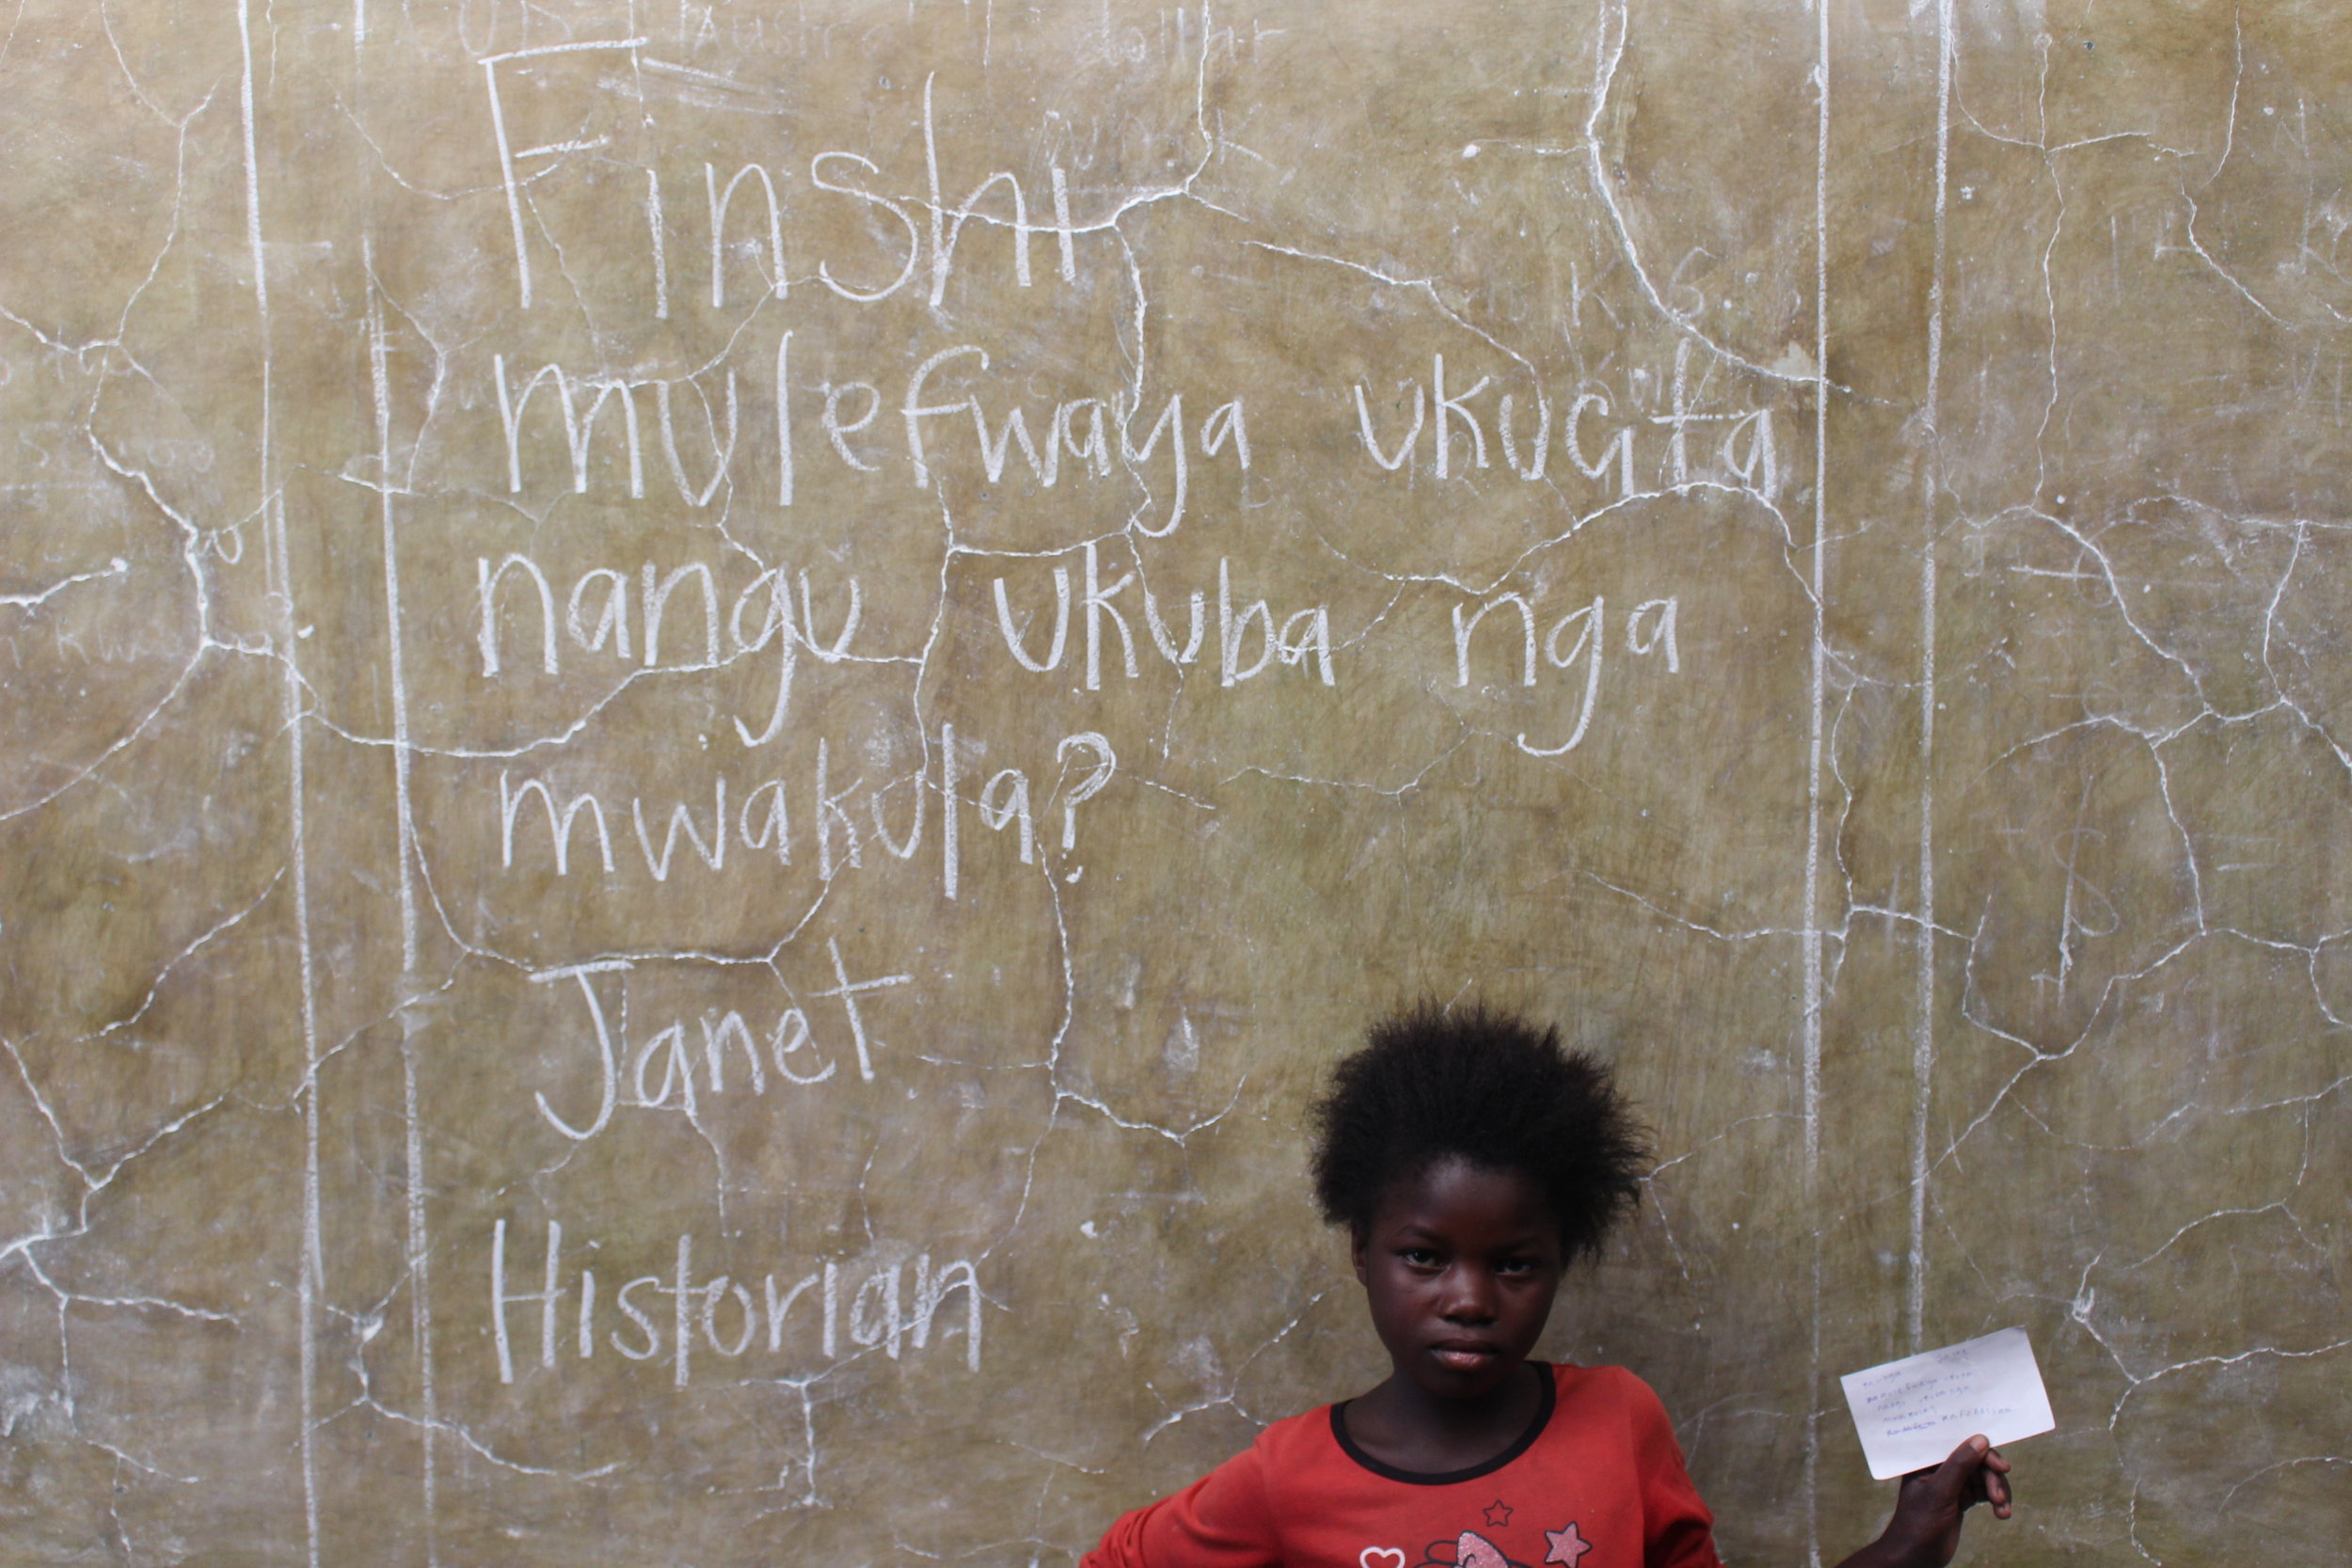 Finshi
mulefwaya ukucita
nangu ukuba nga
mwakula?
Janet
Historian